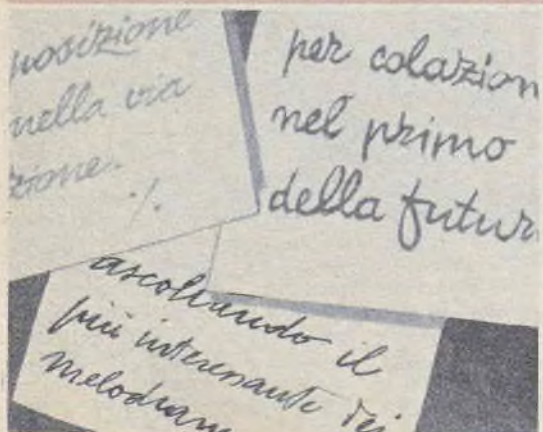 posizione
nella via
zione.
./.
per colazion
nel primo
della futur
ascoltando il
più interessante dei
melodram